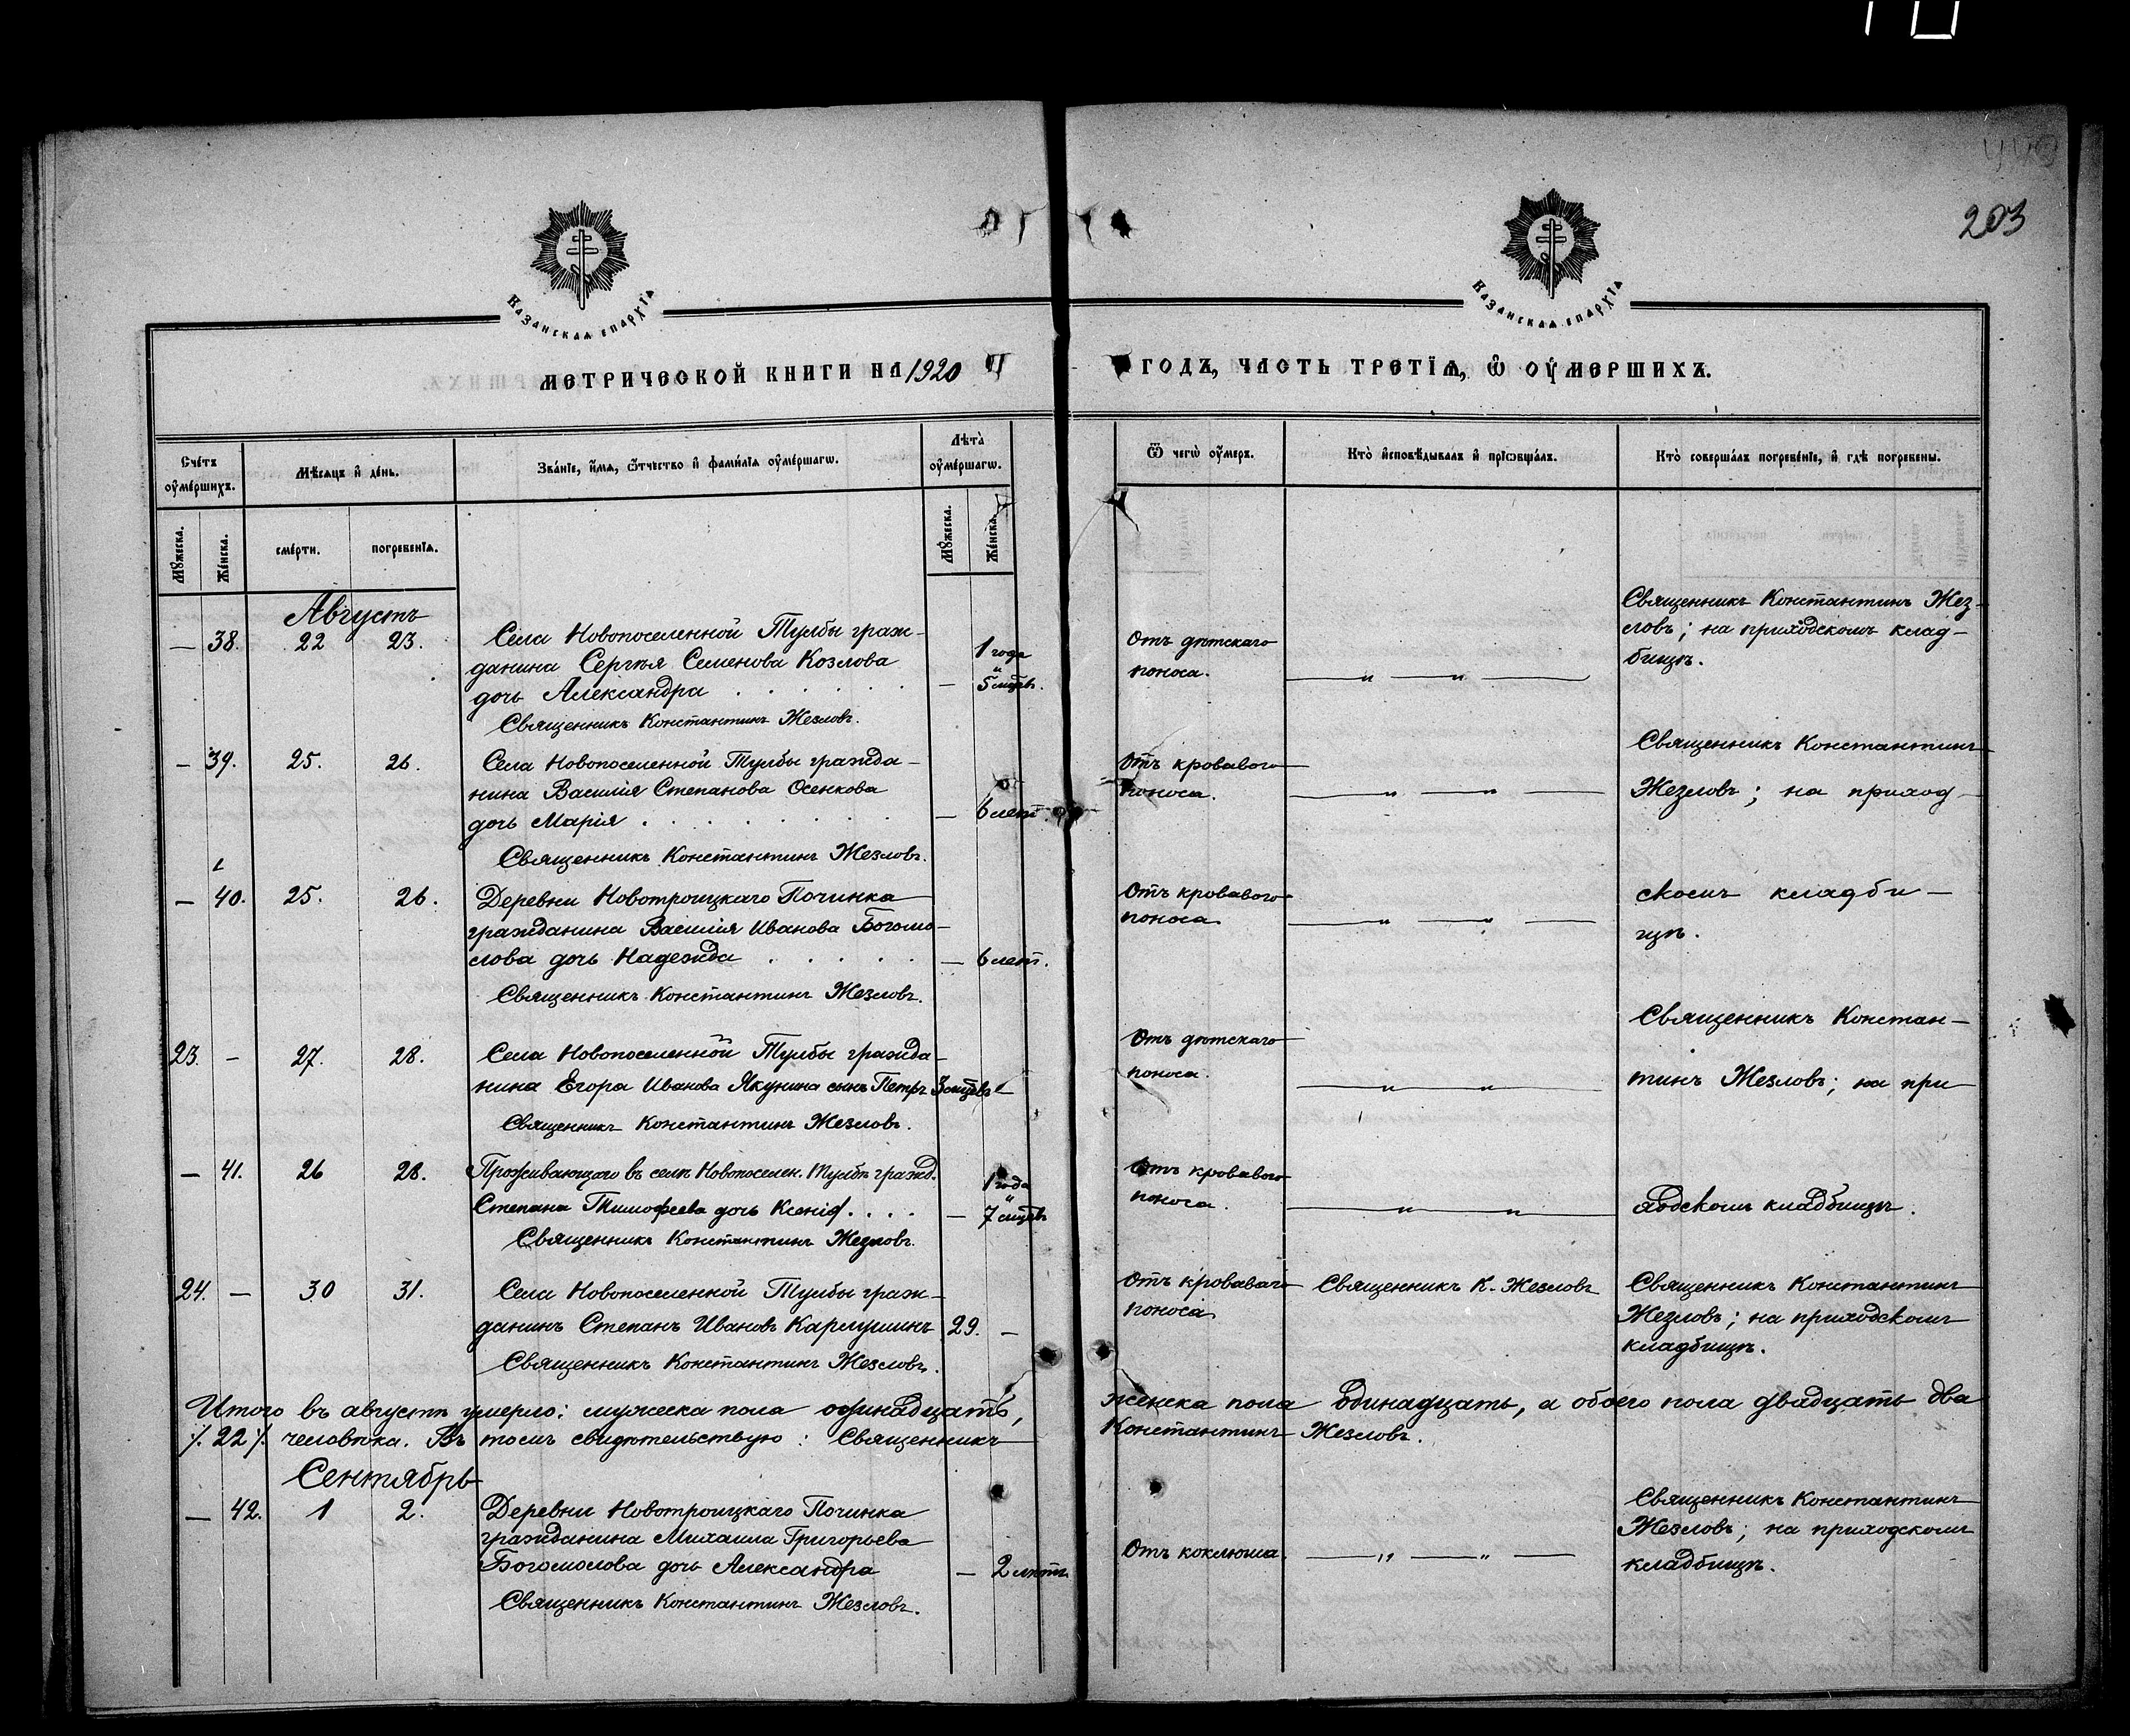 203
Казанская епархїа
Казанская епархїа
Метрической книги на 1920
годъ, часть третїѧ, ѡ оумершихъ.
Счетъ оумершихъ.
Мѣсяцъ и день.
Званїе, имя, ѿчество и фамилїа оумершагѡ.
Лѣта оумершагѡ.
Ѿ чегѡ оумеръ.
Кто исповѣдывалъ и прїѡбщалъ.
Кто совершалъ погребенїе, и гдѣ погребены.
Мужеска.
Женска.
смерти.
погребенїѧ.
Мужеска.
Женска.
Августъ
— 38. 22 23.
Села Новопоселенной Тулбы граж-
данина Сергѣя Семенова Козлова
дочь Александра . . . . . .
— 1 года
"
5 мцѣв.
Священникъ Константинъ Жезловъ.
Отъ дѣтскаго
поноса.
— " — " —
Священникъ Константинъ Жез-
ловъ; на приходскомъ клад-
бищѣ.
— 39. 25. 26.
Села Новопоселенной Тулбы гражда-
нина Василія Степанова Осенкова
дочь Марія . . . . . . .
— 6 лет
Священникъ Константинъ Жезловъ.
Отъ кроваваго
поноса.
— " — " —
Священникъ Константинъ
Жезловъ; на приход-
— 40. 25. 26.
Деревни Новотроицкаго Починка
гражданина Василія Иванова Богомо-
лова дочь Надежда . . . . .
— 6 лет.
Священникъ Константинъ Жезловъ.
Отъ кроваваго
поноса
— " — " —
скомъ кладби-
щѣ.
23. — 27. 28.
Села Новопоселенной Тулбы гражда-
нина Егора Иванова Якунина сынъ Петръ 3 мцѣвъ —
Священникъ Константинъ Жезловъ.
Отъ дѣтскаго
поноса.
— " — " —
Священникъ Констан-
тинъ Жезловъ; на при
— 41. 26 28.
Проживающаго въ селѣ Новопоселен. Тулбѣ гражд.
Степана Тимофеева дочь Ксенія . . . .
— 1 года
"
7 мцѣв
Священникъ Константинъ Жезловъ.
Отъ кроваваго
поноса.
— " — " —
ходскомъ кладбищѣ.
24. — 30 31.
Села Новопоселенной Тулбы граж-
данинъ Степанъ Ивановъ Кармушинъ 29. —
Священникъ Константинъ Жезловъ.
Отъ кроваваго
поноса
Священникъ К. Жезловъ
Священникъ Константинъ
Жезловъ; на приходскомъ
кладбищѣ.
Итого въ августѣ умерло: мужеска пола одинадцать, женска пола одинадцать, а обоего пола двадцать два
/. 22 /. человѣка. Въ томъ свидѣтельствую: Священникъ Константинъ Жезловъ.
Сентябрь
— 42. 1 2.
Деревни Новотроицкаго Починка
гражданина Михаила Григорьева
Богомолова дочь Александра
— 2 лѣтъ
Священникъ Константинъ Жезловъ.
Отъ коклюша.
— " — " —
Священникъ Константинъ
Жезловъ; на приходскомъ
кладбищѣ.